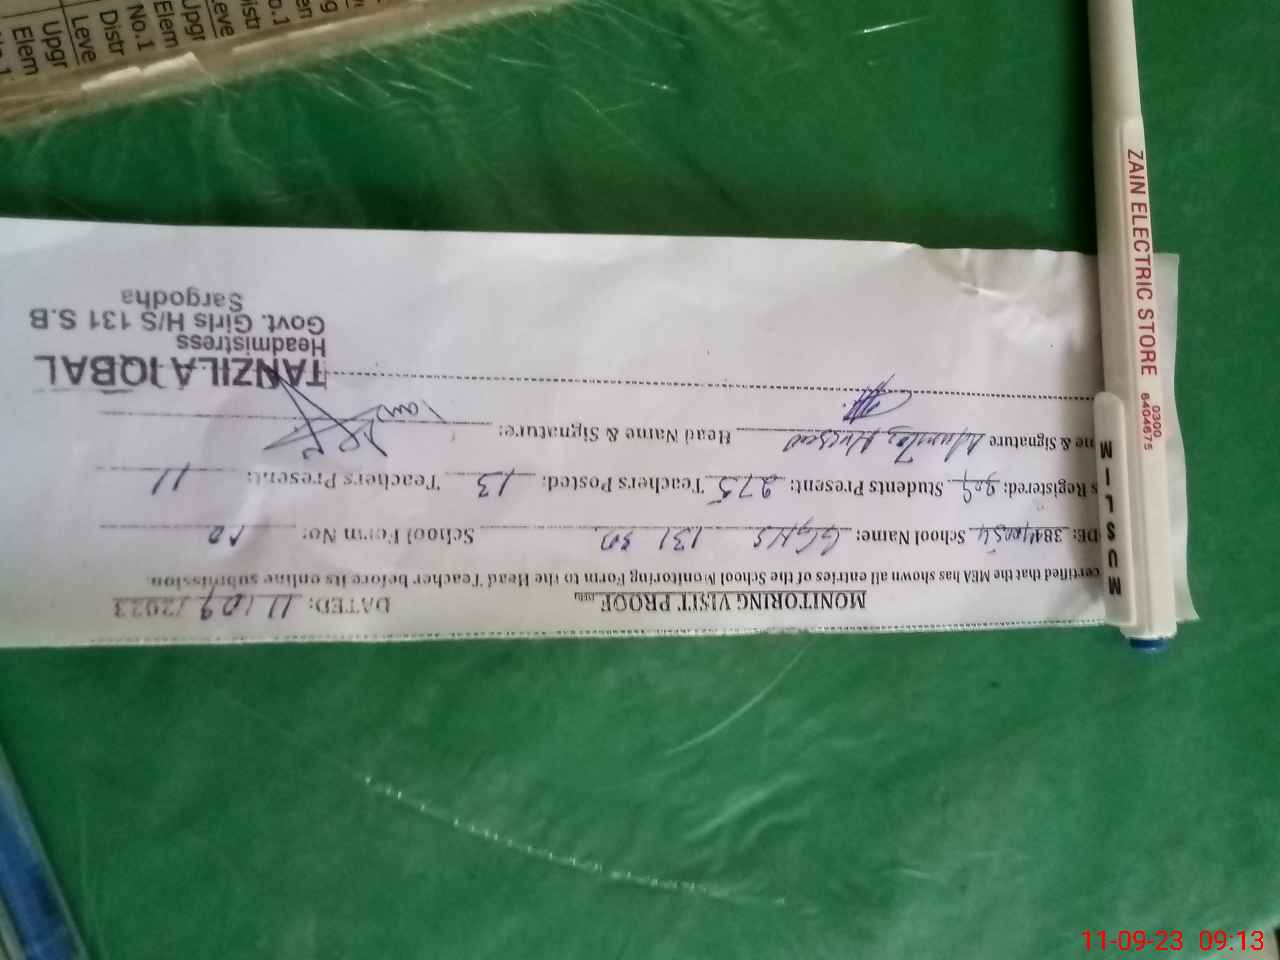 MONITORING VISIT PROOF DATED: 11/09/2023
certified that the MEA has shown all entries of the School Monitoring Form to the Head Teacher before its online submission.
DE: School Name: GGHS 131 SB School Form No: 10
s Registered: 309 Students Present: 275 Teachers Posted: 13 Teachers Present: 11
me & Signature Mumtaz Hussain Head Name & Signature:
TANZILA IQBAL
Headmistress
Govt. Girls H/S 131 S.B
Sargodha
ZAIN ELECTRIC STORE 0300 6404675
MUSLIM
Distr
No.1
Elem
Upgr
Leve
Distr
No.1
Elem
Upgr
Leve
11-09-23 09:13